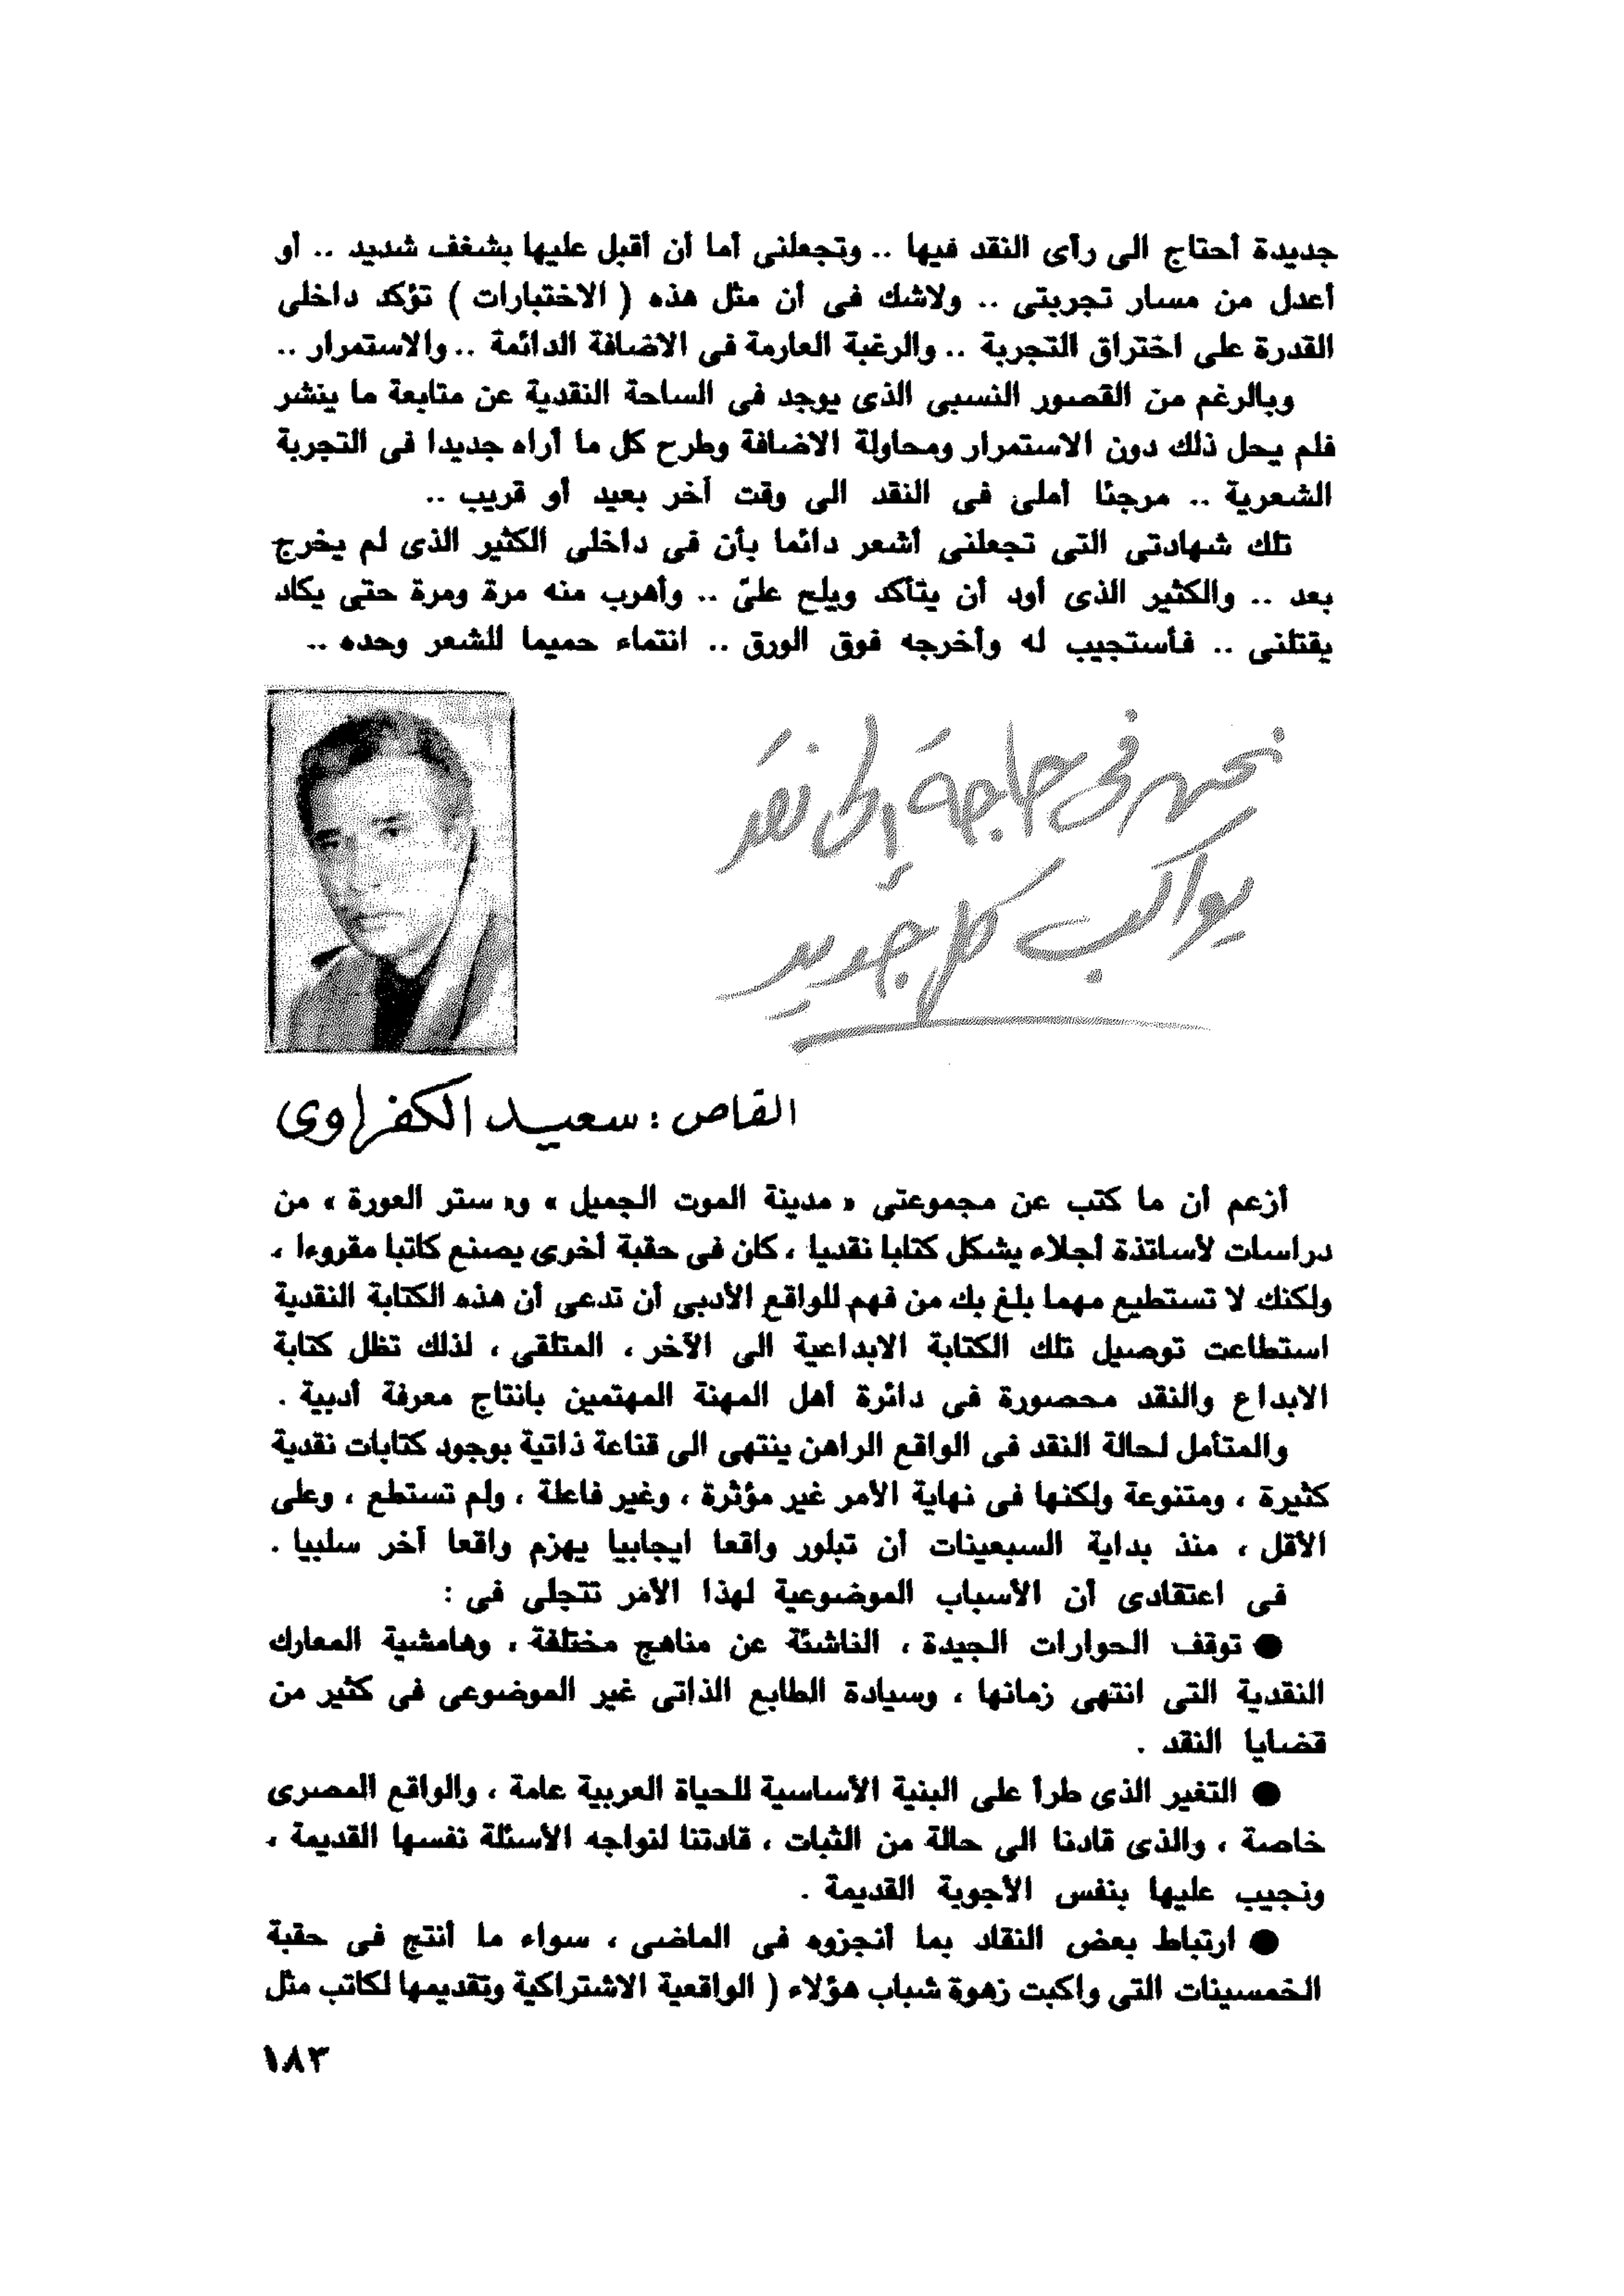 جديدة أحتاج الى رأى النقد فيها .. وتجعلنى أما أن أقبل عليها بشغف شديد .. أو
أعدل من مسار تجربتى .. ولاشك فى أن مثل هذه ( الاختبارات ) تؤكد داخلى
القدرة على اختراق التجربة .. والرغبة العارمة فى الاضافة الدائمة .. والاستمرار ..
وبالرغم من القصور النسبى الذى يوجد فى الساحة النقدية عن متابعة ما ينشر
فلم يحل ذلك دون الاستمرار ومحاولة الاضافة وطرح كل ما أراه جديدا فى التجربة
الشعرية .. مرجئا أملى فى النقد الى وقت أخر بعيد أو قريب ..
تلك شهادتى التى تجعلنى أشعر دائما بأن فى داخلى الكثير الذى لم يخرج
بعد .. والكثير الذى أود أن يتأكد ويلح علىّ .. وأهرب منه مرة ومرة حتى يكاد
يقتلنى .. فأستجيب له وأخرجه فوق الورق .. انتماء حميما للشعر وحده ..
نحن فى حاجة إلى نقد
يواكب كل جديد
القاص : سعيد الكفراوى
أزعم أن ما كتب عن مجموعتى « مدينة الموت الجميل » و« ستر العورة » من
دراسات لأساتذة أجلاء يشكل كتابا نقديا ، كان فى حقبة أخرى يصنع كاتبا مقروءا ،
ولكنك لا تستطيع مهما بلغ بك من فهم للواقع الأدبى أن تدعى أن هذه الكتابة النقدية
استطاعت توصيل تلك الكتابة الابداعية الى الآخر ، المتلقى ، لذلك تظل كتابة
الابداع والنقد محصورة فى دائرة أهل المهنة المهتمين بانتاج معرفة أدبية .
والمتأمل لحالة النقد فى الواقع الراهن ينتهى الى قناعة ذاتية بوجود كتابات نقدية
كثيرة ، ومتنوعة ولكنها فى نهاية الأمر غير مؤثرة ، وغير فاعلة ، ولم تستطع ، وعلى
الأقل ، منذ بداية السبعينات أن تبلور واقعا ايجابيا يهزم واقعا آخر سلبيا .
فى اعتقادى أن الأسباب الموضوعية لهذا الأمر تتجلى فى :
● توقف الحوارات الجيدة ، الناشئة عن مناهج مختلفة ، وهامشية المعارك
النقدية التى انتهى زمانها ، وسيادة الطابع الذاتى غير الموضوعى فى كثير من
قضايا النقد .
● التغير الذى طرأ على البنية الأساسية للحياة العربية عامة ، والواقع المصرى
خاصة ، والذى قادنا الى حالة من الثبات ، قادتنا لنواجه الأسئلة نفسها القديمة ،
ونجيب عليها بنفس الأجوبة القديمة .
● ارتباط بعض النقاد بما أنجزوه فى الماضى ، سواء ما أنتج فى حقبة
الخمسينات التى واكبت زهوة شباب هؤلاء ( الواقعية الاشتراكية وتقديمها لكاتب مثل
١٨٣